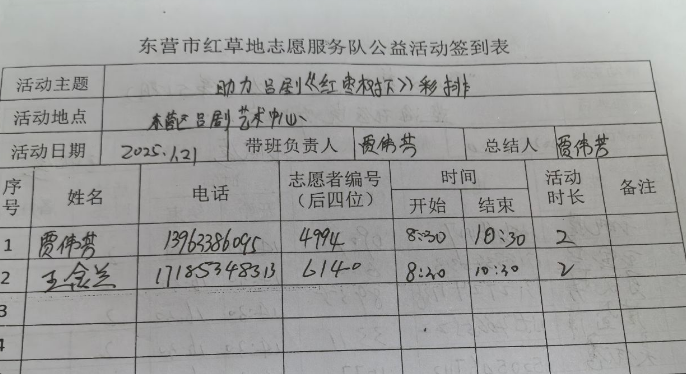 东营市红草地志愿服务队公益活动签到表
活动主题 助力吕剧《红枣树下》彩排
活动地点 东营区吕剧艺术中心
活动日期 2025.1.21 带班负责人 贾伟芳 总结人 贾伟芳
序号 姓名 电话 志愿者编号（后四位） 时间 开始 结束 活动时长 备注
1 贾伟芳 13963386095 4994 8:30 10:30 2
2 王会兰 17185348313 6140 8:30 10:30 2
3
4